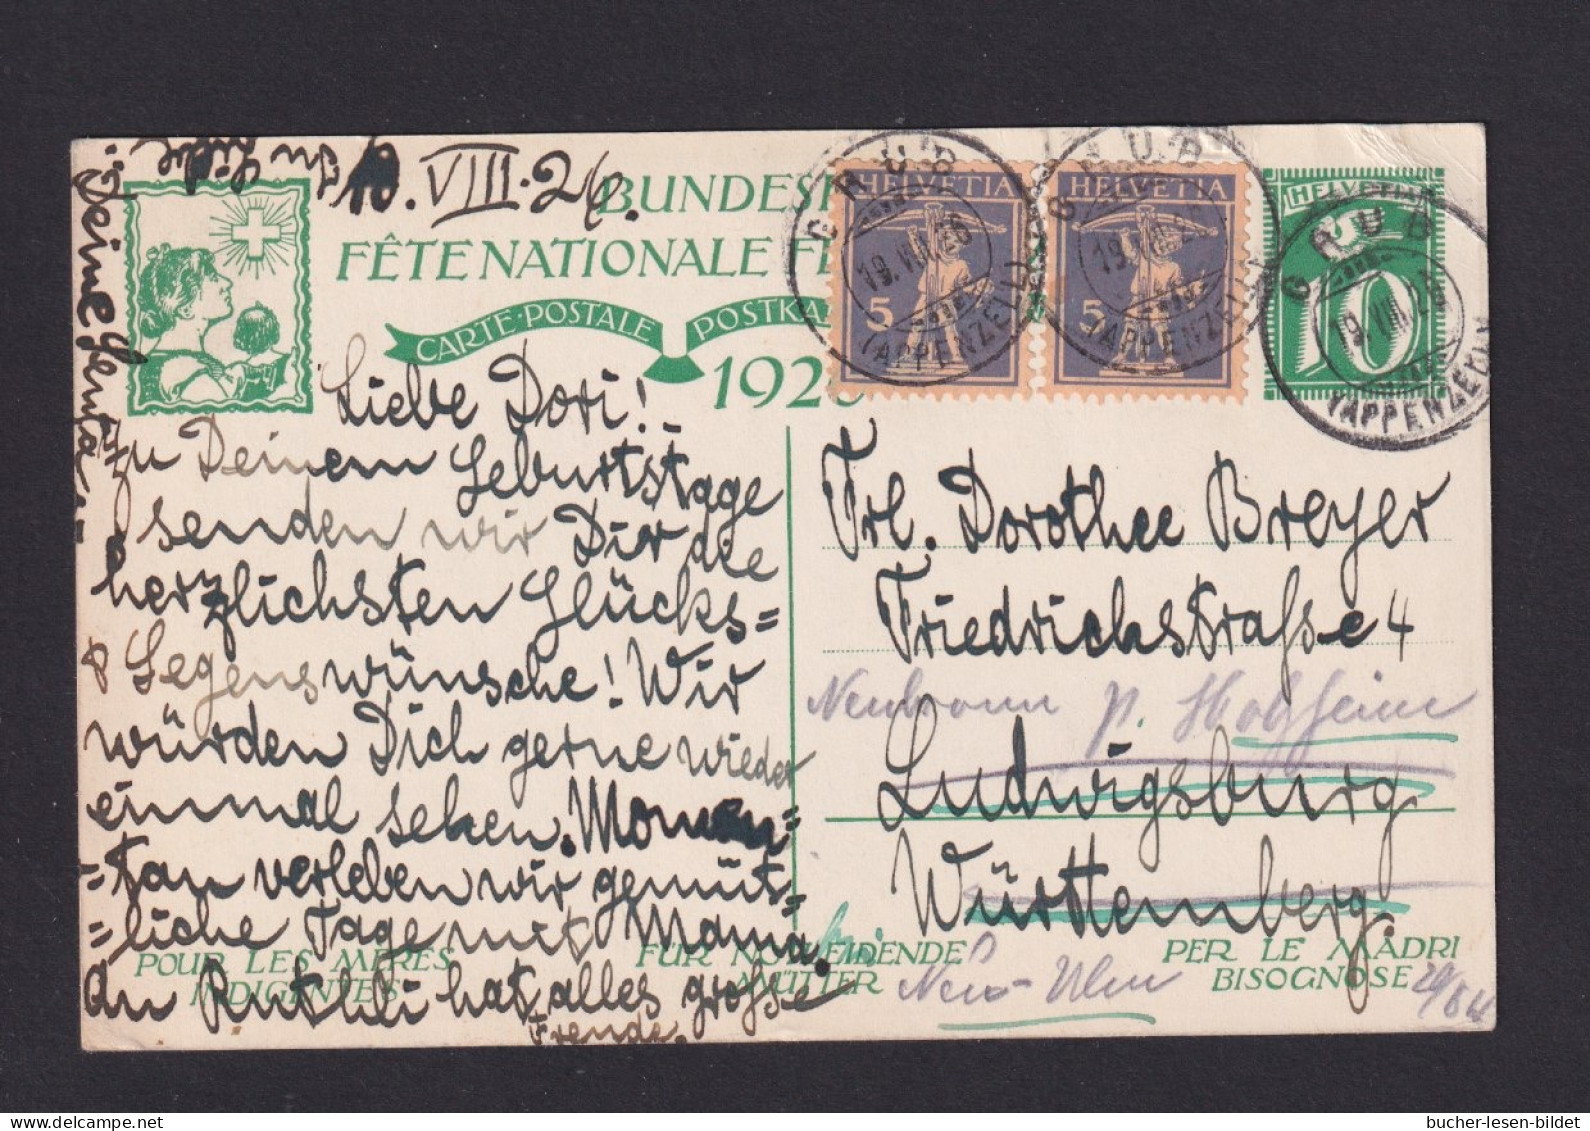 In
Liebe
Deine Genta
10. VIII. 26.
BUNDES
FÊTE NATIONALE
CARTE-POSTALE POSTKA
192
HELVETIA
5
HELVETIA
5
HELVETIA
10
GRUB
19. VIII. 26
(APPENZELL)
GRUB
19. VIII. 26
(APPENZELL)
GRUB
19. VIII. 26
(APPENZELL)
Liebe Dori!
Zu Deinem Geburtstage
senden wir Dir die
herzlichsten Glücks=
& Segenswünsche! Wir
würden Dich gerne wieder
einmal sehen. Momen=
"tan verleben wir gemüt=
"liche Tage mit Mama.
An Ruthli hat alles grosse
Freude.
Frl. Dorothee Breyer
Friedrichstrasse 4
Neubronn p.
Ludwigsburg
Württemberg.
Neu-Ulm
POUR LES MÈRES
INDIGENTES
FÜR NOTLEIDENDE
MÜTTER
PER LE MADRI
BISOGNOSE
bucher-lesen-bildet